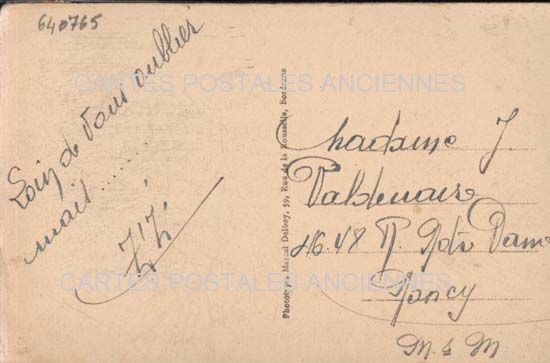 640765
Loin de vous oublier
mait........
Zizi
CARTES POSTALES ANCIENNES
CARTES POSTALES ANCIENNES
Phototypie Marcel Delboy, 39, Rue de la Rousselle, Bordeaux
Madame J.
Valdenaire
46.48 R. Notre Dame
Nancy
M & M